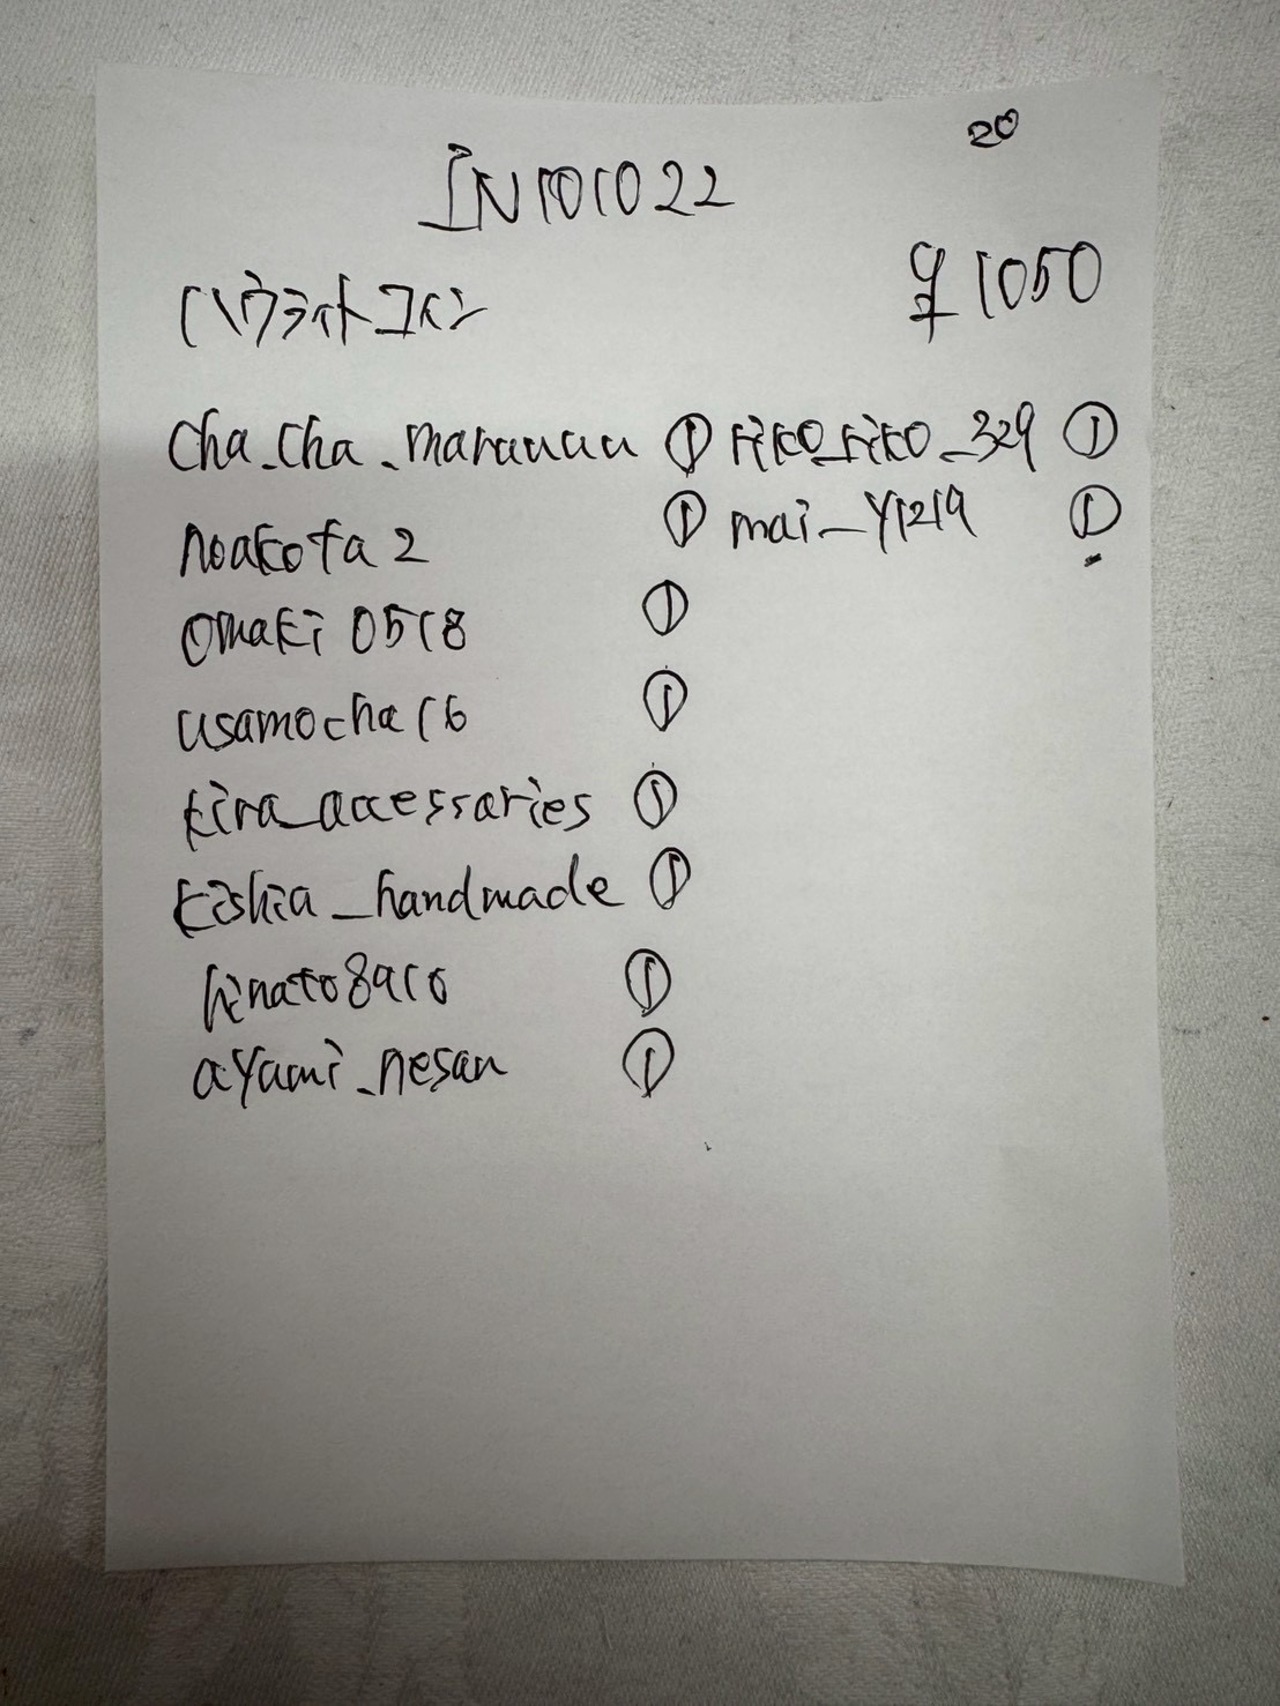 20
IN101022
ハウライトコイン
¥1050
cha_cha_marauuu ①
noakota2 ①
omaki0518 ①
usamocha16 ①
kira_accessaries ①
kishia_handmade ①
hinato8910 ①
ayami_nesan ①
riko_riko_329 ①
mai_y1219 ①